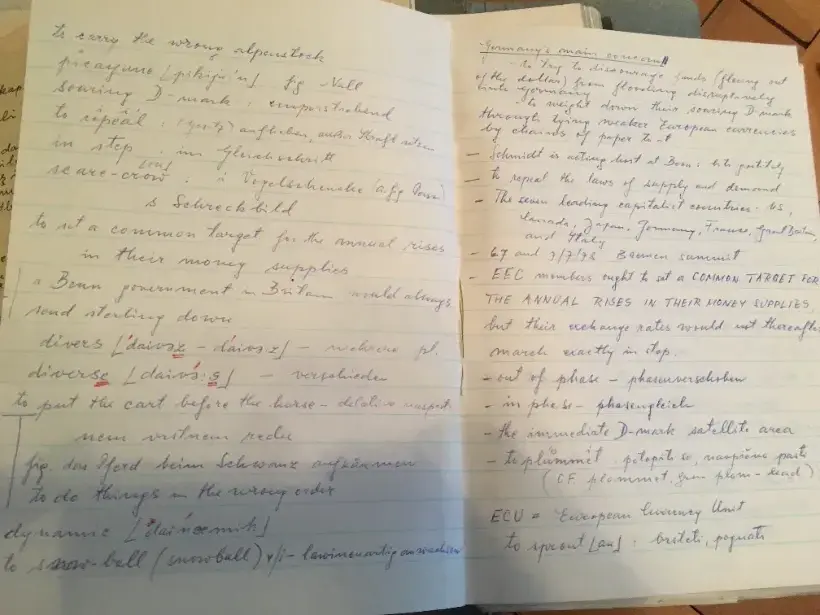 to carry the wrong alpenstock
picayune fig. Null
soaring D-mark : emporstrebend
to repeal : aufheben, außer Kraft setzen
in step : im Gleichschritt
scare-crow : e Vogelscheuche (a. fig.
s Schreckbild
to set a common target for the annual rises
in their money supplies
a Benn government in Britain would always
send sterling down
divers ['daivəz - daivəz] - mehrere pl.
diverse [daivə:s] - verschieden
to put the cart before the horse -
fig. das Pferd beim Schwanz aufzäumen
to do things in the wrong order
dynamic
to snow-ball (snowball) v/i - lawinenartig anwachsen
Germany's main concern
- to try to discourage funds (flowing out
of the dollar) from flooding disruptively
into Germany
- to weight down their soaring D-mark
through tying weaker European currencies
by chains of paper to it
- Schmidt is acting host at Bonn :
- to repeal the laws of supply and demand
- The seven leading capitalist countries - US,
Canada, Japan, Germany, France, Great Britain,
and Italy
- 6.7 and 7/7/78 Bremen summit
- EEC members ought to set a COMMON TARGET FOR
THE ANNUAL RISES IN THEIR MONEY SUPPLIES,
but their exchange rates would not thereafter
march exactly in step.
- out of phase - phasenverschoben
- in phase - phasengleich
- the immediate D-mark satellite area
- to plummet
(CF plummet, from plum - lead)
ECU = European Currency Unit
to sprout [au] :